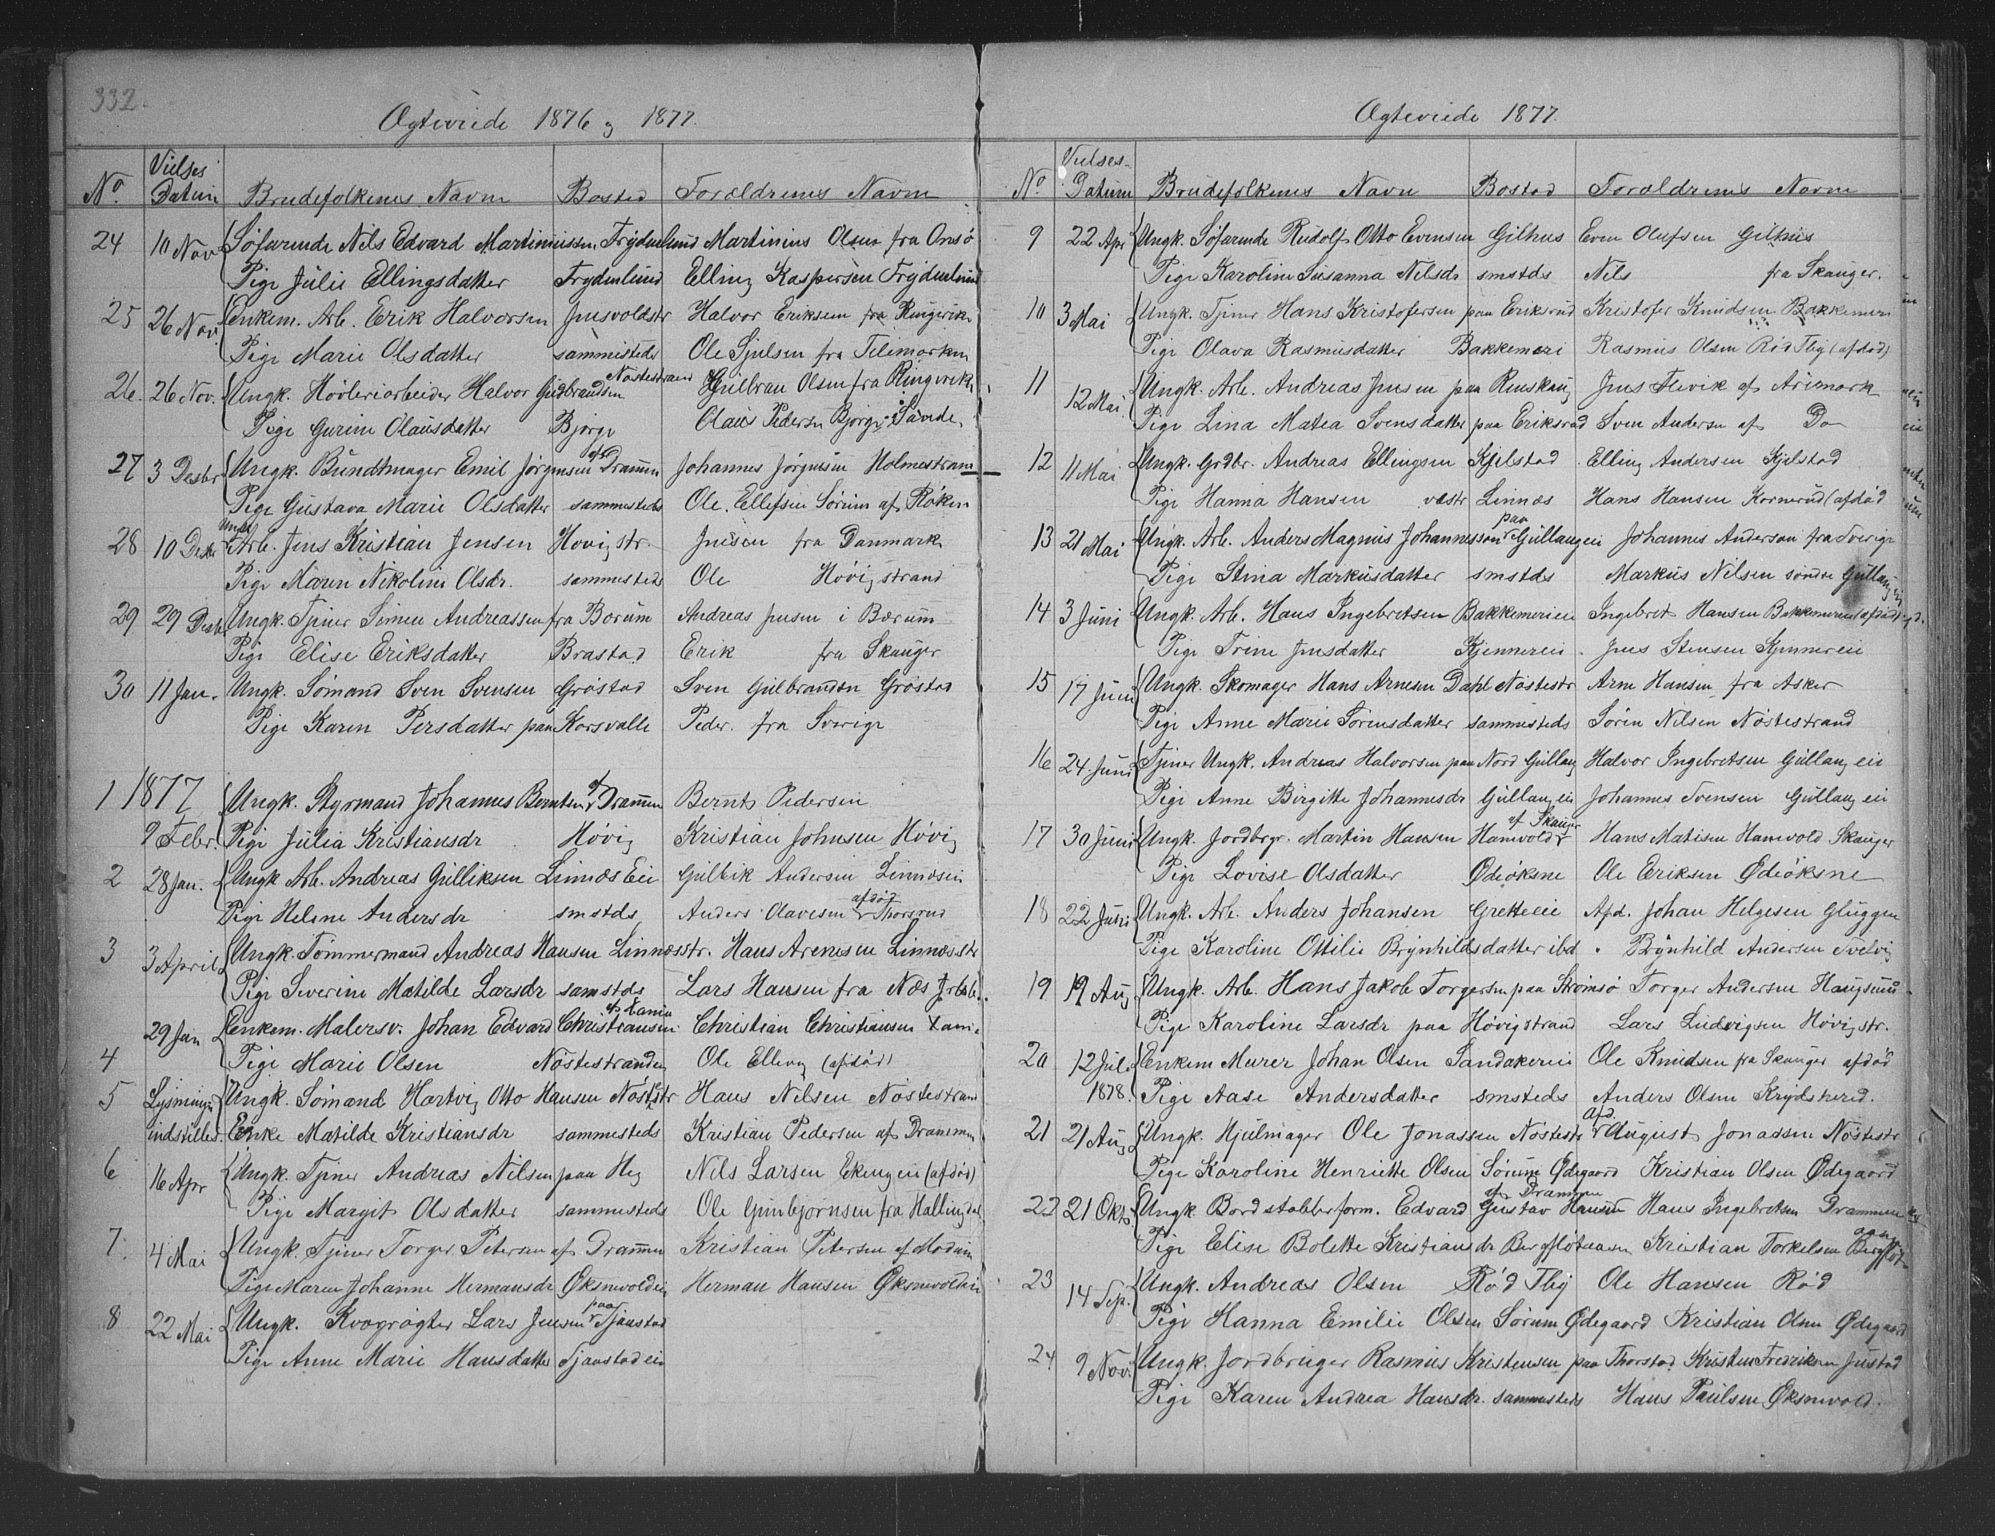 332.
Ægteviede 1876 og 1877.
No. Vielses Datum Brudefolkenes Navn Bosted Forældrenes Navne
24 10 Nov Søfarende Nils Edvard Martiniussen Frydenlund Martinius Olsen fra Onsø
Pige Julie Ellingsdatter Frydenlund Elling Kaspersen Frydenlund
25 26 Nov. Enkem. Arb. Erik Halvorsen Halvor Eriksen fra Ringerike
Pige Marie Olsdatter sammesteds Ole fra Telemarken
26. 26 Nov. Ungk. Høvleriarbeider Halvor Gulbrandsen Nøstestrand Gulbran Olsen fra Ringerike
Pige Gurine Olausdatter Bjørge Olaus Pedersen Bjørge i Sande.
27 3 Desbr Ungk. Bundtmager Emil Jørgensen af Drammen Johannes Jørgensen Holmestrand
Pige Gustava Marie Olsdatter sammesteds Ole Ellefsen Sørum af Røken
28 10 Desbr Ungk Arb. Jens Kristian Jensen Hovigstr. Jensen fra Danmark
Pige Maren Nikoline Olsdr. sammesteds Ole Høvigstrand
29 29 Desb Ungk. Tjener Simen Andreassen fra Bærum Andreas Jensen i Bærum
Pige Elise Eriksdatter Brastad Erik fra Skauger
30 11 Jan. Ungk. Sømand Sven Svensen Grøstad Sven Gulbrandsn Grøstad
Pige Karen Persdatter paa Korsvalle Peder fra Sverige
1 1877 Ungk. Styrmand Johannes Berntsen af Drammen Bernts Pedersen
9 Febr. Pige Julia Kristiansdr Høvig Kristian Johnsen Høvig
2 28 Jan. Ungk Arb. Andreas Gulliksen Linnæs Eie Gulbik Andersen Linnæseie
Pige Helene Andersdr smstds Anders Olavesen afdød Thorsrud
3 3 April Ungk. Tømmermand Andreas Hansen Linnæsstr. Hans Arenesen Linnæsstr
Pige Severine Matilde Larsdr samstds Lars Hansen fra Næs
4 29 Jan Enkem. Malersv. Johan Edvard Christiansen Christian Christiansen
Pige Marie Olsen Nøstestranden Ole Elleng (afdød)
5 Lysningen Ungk. Sømand Hartvig Otto Hansen Nøststr Hans Nilsen Nøstestrand
indstilled. Enke Matilde Kristiansdr sammesteds Kristian Pedersen af Drammen
6 16 Apr Ungk. Tjener Andreas Nilsen paa Heg Nils Larsen Ekengen (afdød)
Pige Margit Olsdatter sammesteds Ole Gunbjørnsen fra Hallingdal
7. 4 Mai Ungk. Tjener Torger Petersen af Drammen Kristian Petersen af Modum
Pige Maren Johanne Hermansdr Øksnevoldeie Herman Hansen Øksnevoldeie
8 22 Mai Ungk. Kvægrøgter Lars Jensen paa Tjaastad
Pige Anne Marie Hansdatter Sjaastadeie
Ægteviede 1877.
No. Vielses-Datum Brudefolkenes Navn Bostad Forældrenes Navne
9 22 Apr Ungk. Søfarende Rudolf Otto Evensen Gilhus Even Olufsen Gilhus
Pige Karoline Susanna Nilsdr smstds Nils fra Skauger.
10 3 Mai Ungk. Tjener Hans Kristofersen paa Eriksrud Kristofer Knudsen Bakkemeri
Pige Olava Rasmusdatter Bakkemeri Rasmus Olsen Rød Tby (afdød)
11 12 Mai. Ungk. Arb. Andreas Jensen paa Renskaug Jens Flevik af Arimark
Pige Lina Matea Svensdatter paa Eriksrud Sven Andersn af Do
12 11 Mai Ungk. Grdbr. Andreas Ellingsen Kjelstad Elling Andersen Kjelstad
Pige Hanna Hansen vestr Linnæs Hans Hansen Kornerud (afdød
13 21 Mai Ungk. Arb. Anders Magnus Johannesson paa Gullaugeie Johannes Anderson fra Sverige
Pige Stina Markusdatter smstds Markus Nilsen søndre Gullaug eie
14 3 Juni Ungk. Arb. Hans Ingebretsen Bakkemerieie Ingebret Hansen Bakkemerieie (afdød)
Pige Trine Jensdatter Kjennereie Jens Stensen Kjennereie
15 17 Juni Ungk. Skomager Hans Arnesen Dahl Nøstestr Arne Hansen fra Asker
Pige Anne Marie Sørensdatter sammesteds Søren Nilsen Nøstestrand
16 24 Juni Tjener Ungk. Andreas Halvorsen paa Nord Gullaug Halvor Ingebretsen Gullaug eie
Pige Anne Birgitte Johannesdr Gullaug eie Johannes Svensen Gullaug eie
17 30 Juni Ungk. Jordbrgr. Martin Hansen Hamvold af Skauger Hans Matisen Hamvold Skauger
Pige Lovise Olsdatter Ødeøksne Ole Eriksen Ødeøksne
18 22 Juni Ungk. Arb. Anders Johansen Gretteeie Afd. Johan Helgesen Gluggen
Pige Karoline Ottilie Brynhildsdatter ibd. Brynhild Andersen Svelvig
19 19 Aug Ungk. Arb. Hans Jakob Torgersen paa Strømsø Torger Andersen Haugsund
Pige Karoline Larsdr paa Høvigstrand Lars Ludvigsen Høvigstr.
20 12 Jul. Enkem Murer Johan Olsen Sandakereie Ole Knudsen fra Skauger afdød
1878. Pige Aase Andersdatter smsteds Anders Olsen Krydsherred.
21 21 Aug Ungk. Hjulmager Ole Jonassen Nøstestr Afd. August Jonassen Nøstestr
Pige Karoline Henriette Olsen Sørum Ødegaard Kristian Olsen Ødegaard
22 21 Okt. Ungk. Bordstabberform. Edvard Gustav Hansen af Drammen Hans Ingebretsen Drammen
Pige Elise Bolette Kristiansdr Bergfløtaasen Kristian Torkelsen Bergfløt
23 14 Sep. Ungk. Andreas Olsen Rød Tby Ole Hansen Rød
Pige Hanna Emilie Olsen Sørum Ødegaard Kristian Olsen Ødegaard
24 9 Nov. Ungk. Jordbruger Rasmus Kristensen paa Thorstad Kristen Fredriksen Justad
Pige Karen Andrea Hansdr. sammesteds Hans Paulsen Øksnevold.